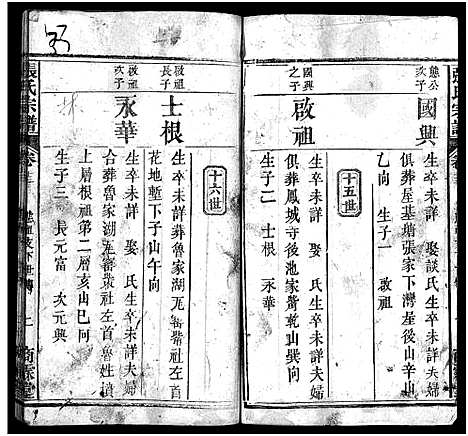 張氏宗譜
總公次子
國興
生卒未詳 娶談氏生卒未詳夫婦
俱葬屋基塘張家下灣屋後山辛山
乙向 生子一 啟祖
十五世
國興之子
啟祖
生卒未詳 娶 氏生卒未詳夫婦
俱葬鳳城寺後池家𡺚乾山巽向
生子二 士根 永華
十六世
啟祖長子
士根
生卒未詳葬魯家湖瓦窰𡺚社左首
花地塹下子山午向
啟祖次子
永華
生卒未詳 娶 氏生卒未詳夫婦
合葬魯家湖瓦窰𡺚社左首魯姓山
上層根祖第二層亥山巳向
生子三 長元富 次元興
張氏宗譜
卷